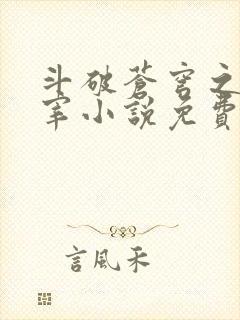 斗破蒼穹之
宰小說免費
言風禾